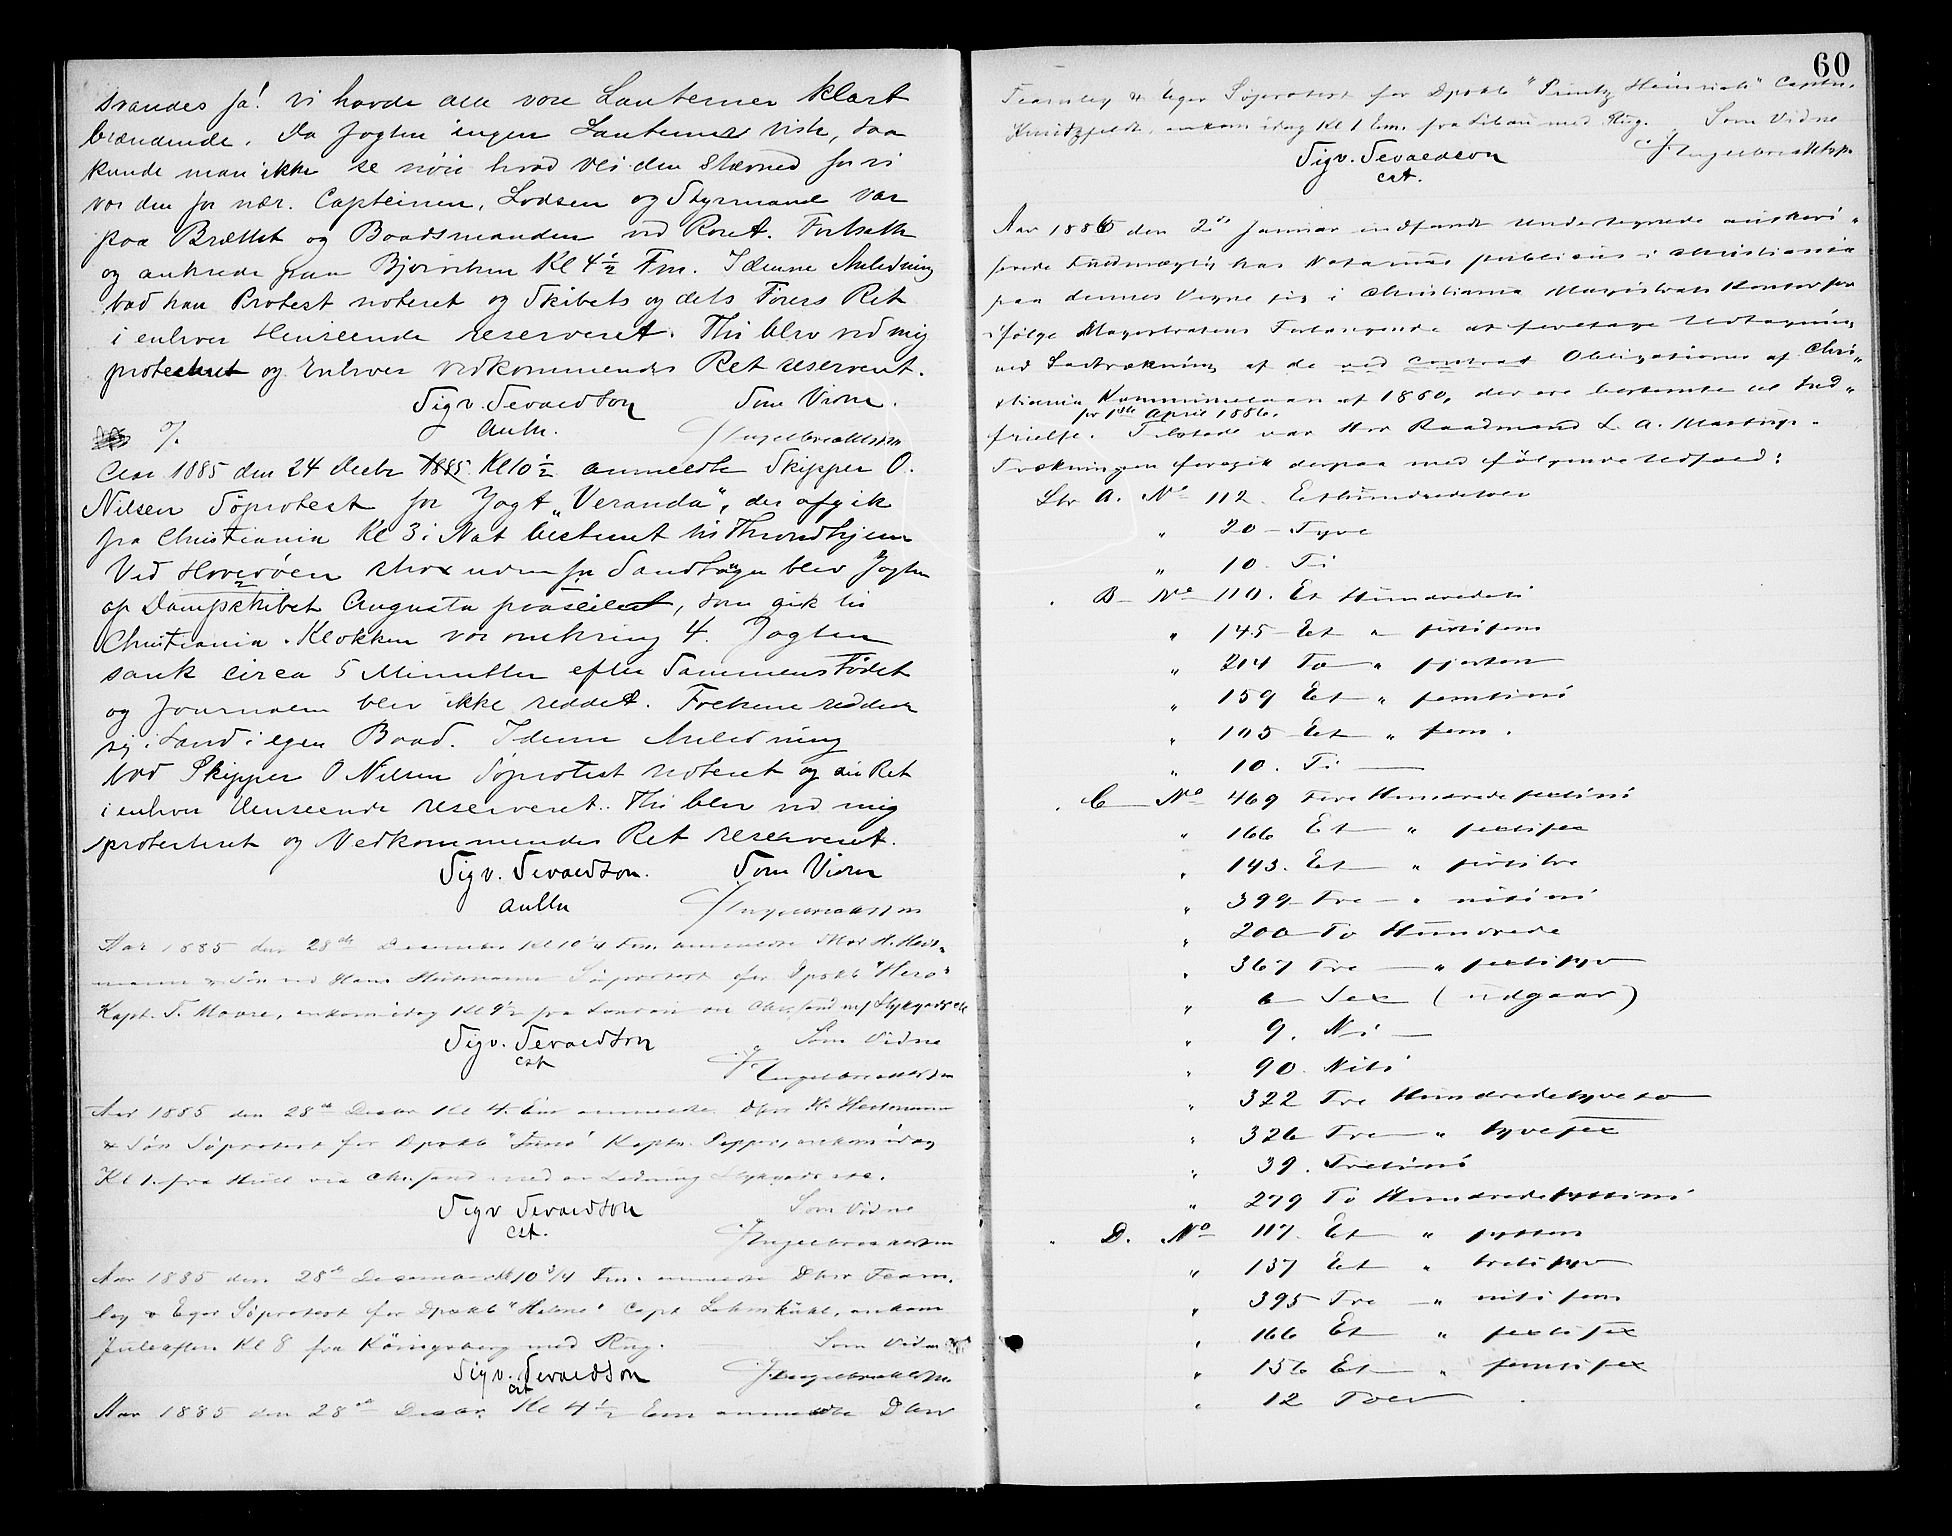 svandes ja! vi havde alle vore Lanterner klart
brændende. Da Jagten ingen Lanterner viste, saa
kunde man ikke se nöie hvad vei den stævned for vi
var den for nær. Capteinen, Lodsen og Styrmand var
paa Brættet og Baadsmanden ved Roret. Fortsatte
og ankrede paa Bjorviken Kl 4½ Fm. I denne Anledning
bad han Protest noteret og Skibets og dets Förers Ret
i enhver Henseende reserveret. Thi blev ved mig
protesteret og Enhver vedkommendes Ret reserveret.
Sigv. Sevaldson Som Vidne.
auth. J Ingelbrektsen
%.
Aar 1885 den 24 Decbr 1885 Kl 10½ anmeldte Skipper O.
Nilsen Söprotest for Jagt „Veranda", der afgik
fra Christiania Kl 3 i Nat bestemt til Throndhjem
Ved Hovedöen strax uden for Sandtangen blev Jagten
af Dampskibet Augusta paaseilet, som gik til
Christiania. Klokken var omkring 4. Jagten
sank circa 5 Minutter efter Sammenstödet
og Journalen blev ikke reddet. Folkene reddede
sig i Land i egen Baad. I denne Anledning
bad Skipper O Nilsen Söprotest noteret og sin Ret
i enhver Henseende reserveret. Thi blev ved mig
protesteret og Vedkommendes Ret reserveret.
Sigv. Sevaldson. Som Vidne
auth J Ingelbrektsen
Aar 1885 den 28de December Kl 10¼ Fm. anmeldte Hr H. Heit-
mann & Sön ved Hans Heitmann Söprotest for Dpskb "Hero"
Kapt. T. Moore, ankom idag Kl 9½ fra London via Chr.sand m/ Stykgods etc
Sigv. Sevaldson Som Vidne
cst J Ingelbrektsen
Aar 1885 den 28de Decbr Kl 4 Em anmeldte Dhrr H. Heitmann
& Sön Söprotest for Dpskb "Juno" Kaptn. Pepper, ankom idag
Kl 1. fra Hull via Chr.sand med en Ladning Stykgods etc.
Sigv Sevaldson Som Vidne
cst. J Ingelbrektsen
Aar 1885 den 28de December Kl 10 3/4 Fm. anmeldte Dhrr Fearn-
ley & Eger Söprotest for Dpskb "Helene" Capt Lehmkuhl, ankom
Juleaften Kl 8 fra Königsberg med Rug. Som Vidne
Sigv. Sevaldson J Ingelbrektsen
cst
Aar 1885 den 28de Decbr. Kl 4½ Em anmeldte Dhrr
60
Fearnley & Eger Söprotest for Dpskb "Printz Heinrich" Captn.
ankom idag Kl 1 Em. fra Libau med Rug. Som Vidne
Sigv. Sevaldson J Ingelbrektsen
cst.
Aar 1886 den 2den Januar indfandt undertegnede autori-
serede Fuldmægtig hos Notarius publicus i Christiania
paa dennes Vegne sig i Christiania Magistrats Kontor for
ifölge Magistratens Forlangende at foretage Udtagning
ved Lodtrækning af de Obligationer af Chri-
stiania Kommunelaan af 1880, der ere bestemte til Ind-
frielse pr 1ste April 1886. Tilstede var Hr Raadmand L. A. Mastrup.
Trækningen foregik derpaa med fölgende Udfald:
Ltr A. No 112. Ethundredetolv
" 20 - Tyve
" 10. Ti
" B - No 110. Et Hundredeti
" 145 - Et " förtifem
" 214 To - " fjorten
" 159 Et - " femtini
" 105 - Et " fem.
" 10. Ti -
" C - No 469 Fire Hundrede sextini
" 166 Et - " sextisex
" 143. Et - " förtitre
" 399 - Tre - " nitini
" 200 - To Hundrede
" 367 Tre - " sextisyv
" 6 - Sex (udgaar)
" 9. Ni -
" 90. Niti
" 322 Tre Hundredetyveto
" 326 Tre - " tyvesex
" 39. Trettini
" 279 To Hundredesyttini
" D. No 117. Et " sytten
" 137 Et " tretisyv
" 395 - Tre - " nitifem
" 166 Et - " sextisex
" 156 Et - " femtisex
" 12 Tolv